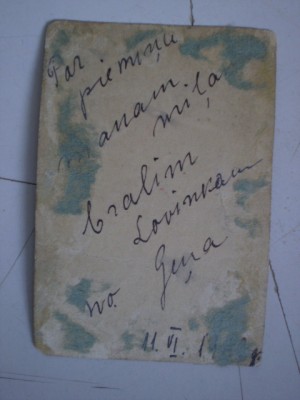 Par
piemiņu
manam
mīļa
brālim
Lovinkam
no. Geņa
11. VI. 1